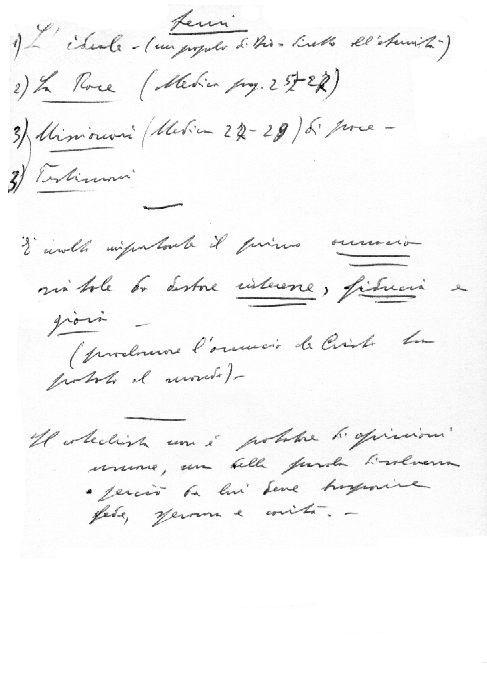 temi
1) L'ideale - (un popolo di Dio - diretto all'eternità)
2) La Pace (Medica pag. 25-27)
3) Missionari (Medica 27-29) di pace -
3) Testimoni
È molto importante il primo annuncio
sia tale da destare interesse, fiducia e
gioia -
(proclamare l'annuncio che Cristo ha
portato al mondo) -
Il catechista non è portatore di opinioni
umane, ma della parola di salvezza
perciò da lui deve trasparire
fede, speranza e carità. -